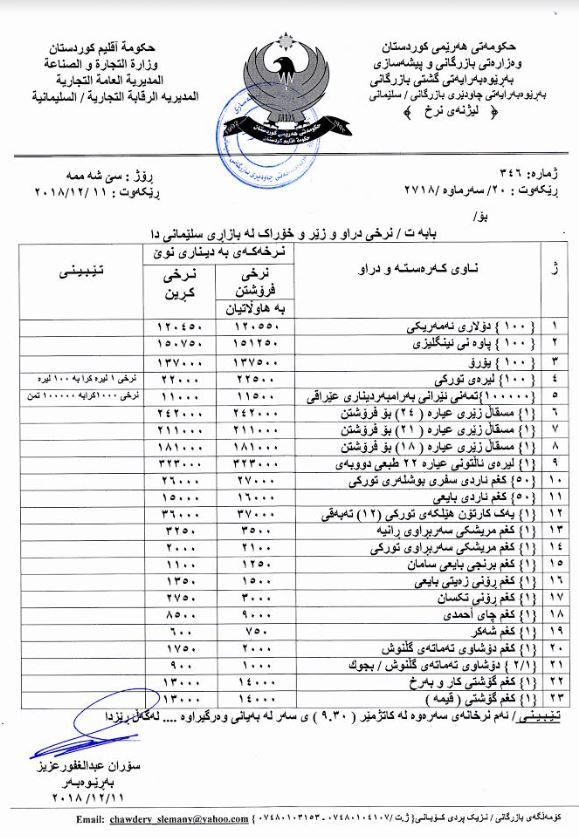 حکومەتی هەرێمی کوردستان
وەزارەتی بازرگانی و پیشەسازی
بەڕێوەبەرایەتی گشتی بازرگانی
بەڕێوەبەرایەتی چاودێری بازرگانی / سلێمانی
﴿ لیژنەی نرخ ﴾
حكومة أقليم كوردستان
وزارة التجارة و الصناعة
المديرية العامة التجارية
المديريه الرقابة التجارية / السليمانية
حکومەتی هەرێمی کوردستان
حكومة اقليم كردستان
ژمارە: ٣٤٦
ڕێکەوت : ٢٠/ سەرماوەز/ ٢٧١٨
ڕۆژ : سێ شە ممە
ڕێکەوت : ١١ /١٢/ ٢٠١٨
بۆ/
بابە ت / نرخی دراو و زێر و خۆراک لە بازاڕی سلێمانی دا
ژ ناوی کەرەستە و دراو نرخەکەی بە دیناری نوێ تێبینی
نرخی فرۆشتن بە هاوڵاتیان نرخی کڕین
١ { ١٠٠ } دۆلاری ئەمەریکی ١٢٠٥٥٠ ١٢٠٤٥٠
٢ { ١٠٠ } پاوە نی ئینگلیزی ١٥١٢٥٠ ١٥٠٧٥٠
٣ { ١٠٠ } یۆرۆ ١٣٧٥٠٠ ١٣٧٠٠٠
٤ {١٠٠} لیرەی تورکی ٢٢٥٠٠ ٢٢٠٠٠ نرخی ١ لیرە کرا بە ١٠٠ لیرە
٥ {١٠٠٠٠٠}تمەنی ئێرانی بەرامبەردیناری عێراقی ١١٥٠٠ ١١٠٠٠ نرخی ١٠٠٠کرابە ١٠٠٠٠٠ تمن
٦ {١} مسقاڵ زێری عیارە (٢٤ ) بۆ فرۆشتن ٢٤٢٠٠٠ ٢٤٢٠٠٠
٧ {١} مسقاڵ زێری عیارە ( ٢١ ) بۆ فرۆشتن ٢١١٠٠٠ ٢١١٠٠٠
٨ {١} مسقاڵ زێری عیارە (١٨ ) بۆ فرۆشتن ١٨١٠٠٠ ١٨١٠٠٠
٩ {١} لیرەی ئاڵتونی عیارە ٢٢ طبعی دووبەی ٣٢٣٠٠٠ ٣٢٣٠٠٠
١٠ {٥٠} کغم ئاردی سفری بوشلەری تورکی ٢٧٠٠٠ ٢٦٠٠٠
١١ {٥٠} کغم ئاردی بایعی ١٦٠٠٠ ١٥٠٠٠
١٢ {١} یەک کارتۆن هێلکەی تورکی (١٢) تەبەقی ٣٧٠٠٠ ٣٦٠٠٠
١٣ {١} کغم مریشکی سەربراوی ڕانیە ٣٥٠٠ ٣٢٥٠
١٤ {١} کغم مریشکی سەربراوی تورکی ٢١٠٠ ٢٠٠٠
١٥ {١} کغم برنجی بایعی سامان ١٢٥٠ ١١٠٠
١٦ {١} کغم ڕۆنی زەیتی بایعی ١٥٠٠ ١٣٥٠
١٧ {١} کغم ڕۆنی تکسان ٣٠٠٠ ٢٧٥٠
١٨ {١} کغم چای أحمدی ٩٠٠٠ ٨٥٠٠
١٩ {١} کغم شەکر ٧٥٠ ٦٠٠
٢٠ {١} کغم دۆشاوی تەماتەی گڵنوش ٢٠٠٠ ١٧٥٠
٢١ {٢/١ } دۆشاوی تەماتەی گڵنوش / بچوك ١٠٠٠ ٩٠٠
٢٢ {١} کغم گۆشتی کار و بەرخ ١٤٠٠٠ ١٣٠٠٠
٢٣ {١} کغم گۆشتی ( قیمە ) ١٤٠٠٠ ١٣٠٠٠
تێبینی/ ئەم نرخانەی سەرەوە لە کاتژمێر (٩.٣٠ ) ی سەر لە بەیانی وەرگیراوە .... لەگەڵ ڕێزدا
سۆران عبدالغفورعزیز
بەڕێوەبەر
٢٠١٨/١٢/١١
کۆمەڵگەی بازرگانی / نزیک پردی کۆبانی{ ژ.ت /٠٧٤٨٠١٠٤١٠٧ - ٠٧٤٨٠١٠٣١٥٣ } Email: chawdery_slemany@yahoo.com